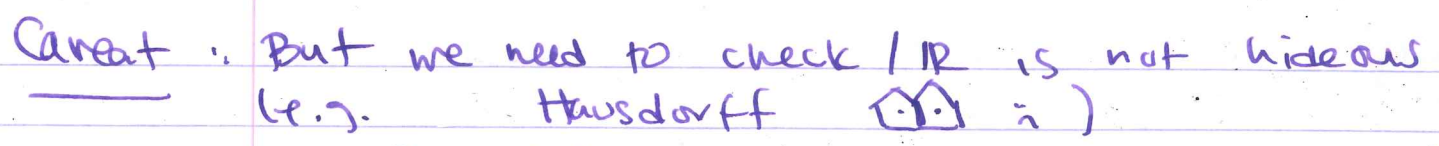 Caveat : But we need to check /ℝ is not hideous
(e.g. Hausdorff :)